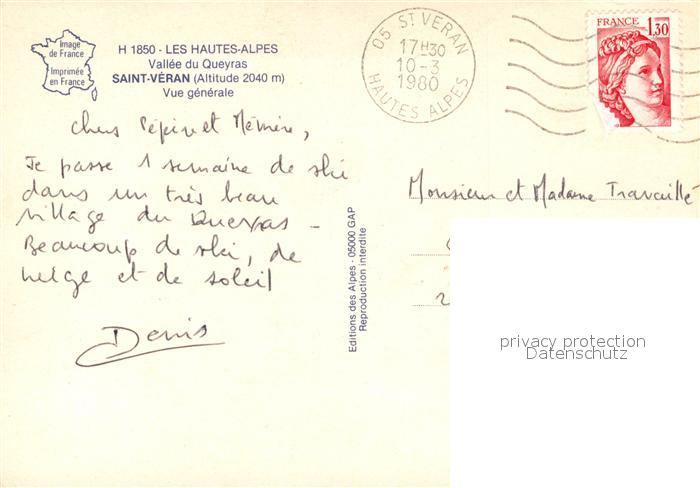 Image
de France
Imprimée
en France
H 1850 - LES HAUTES-ALPES
Vallée du Queyras
SAINT-VÉRAN (Altitude 2040 m)
Vue générale
05 ST VERAN
17H30
10-3
1980
HAUTES ALPES
FRANCE
1,30
Chers Pépère et Mémère,
Je passe 1 semaine de ski
dans un très beau
village du Queyras -
Beaucoup de ski, de
neige et de soleil
Denis
Editions des Alpes - 05000 GAP
Reproduction interdite
Monsieur et Madame Travaille
2
privacy protection
Datenschutz